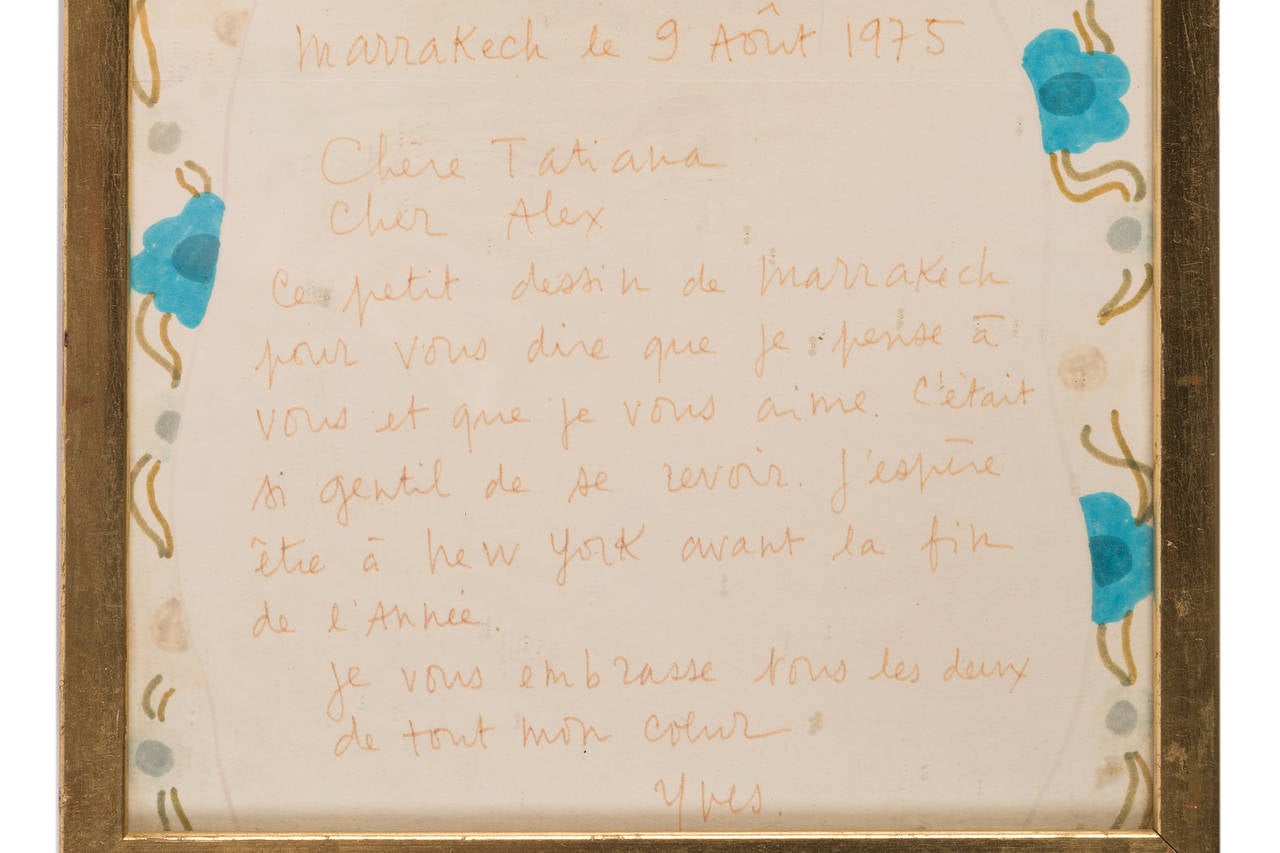 Marrakech le 9 Août 1975
Chère Tatiana
Cher Alex
Ce petit dessin de Marrakech
pour vous dire que je pense à
vous et que je vous aime. C'était
si gentil de se revoir. J'espère
être à New York avant la fin
de l'Année.
Je vous embrasse tous les deux
de tout mon coeur
Yves.